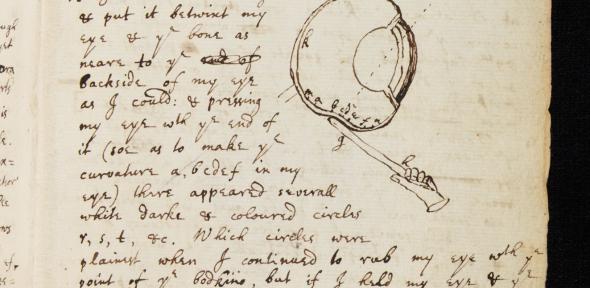 & put it betwixt my
eye & yͤ bone as
neare to yͤ end of
backside of my eye
as I could: & pressing
my eye wth yͤ end of
it (soe as to make yͤ
curvature a, bcdef in my
eye) there appeared severall
white darke & coloured circles
r, s, t, &c. Which circles were
plainest when I continued to rub my eye wth yͤ
point of yͤ bodkine, but if I held my eye & yͤ
h
g
k